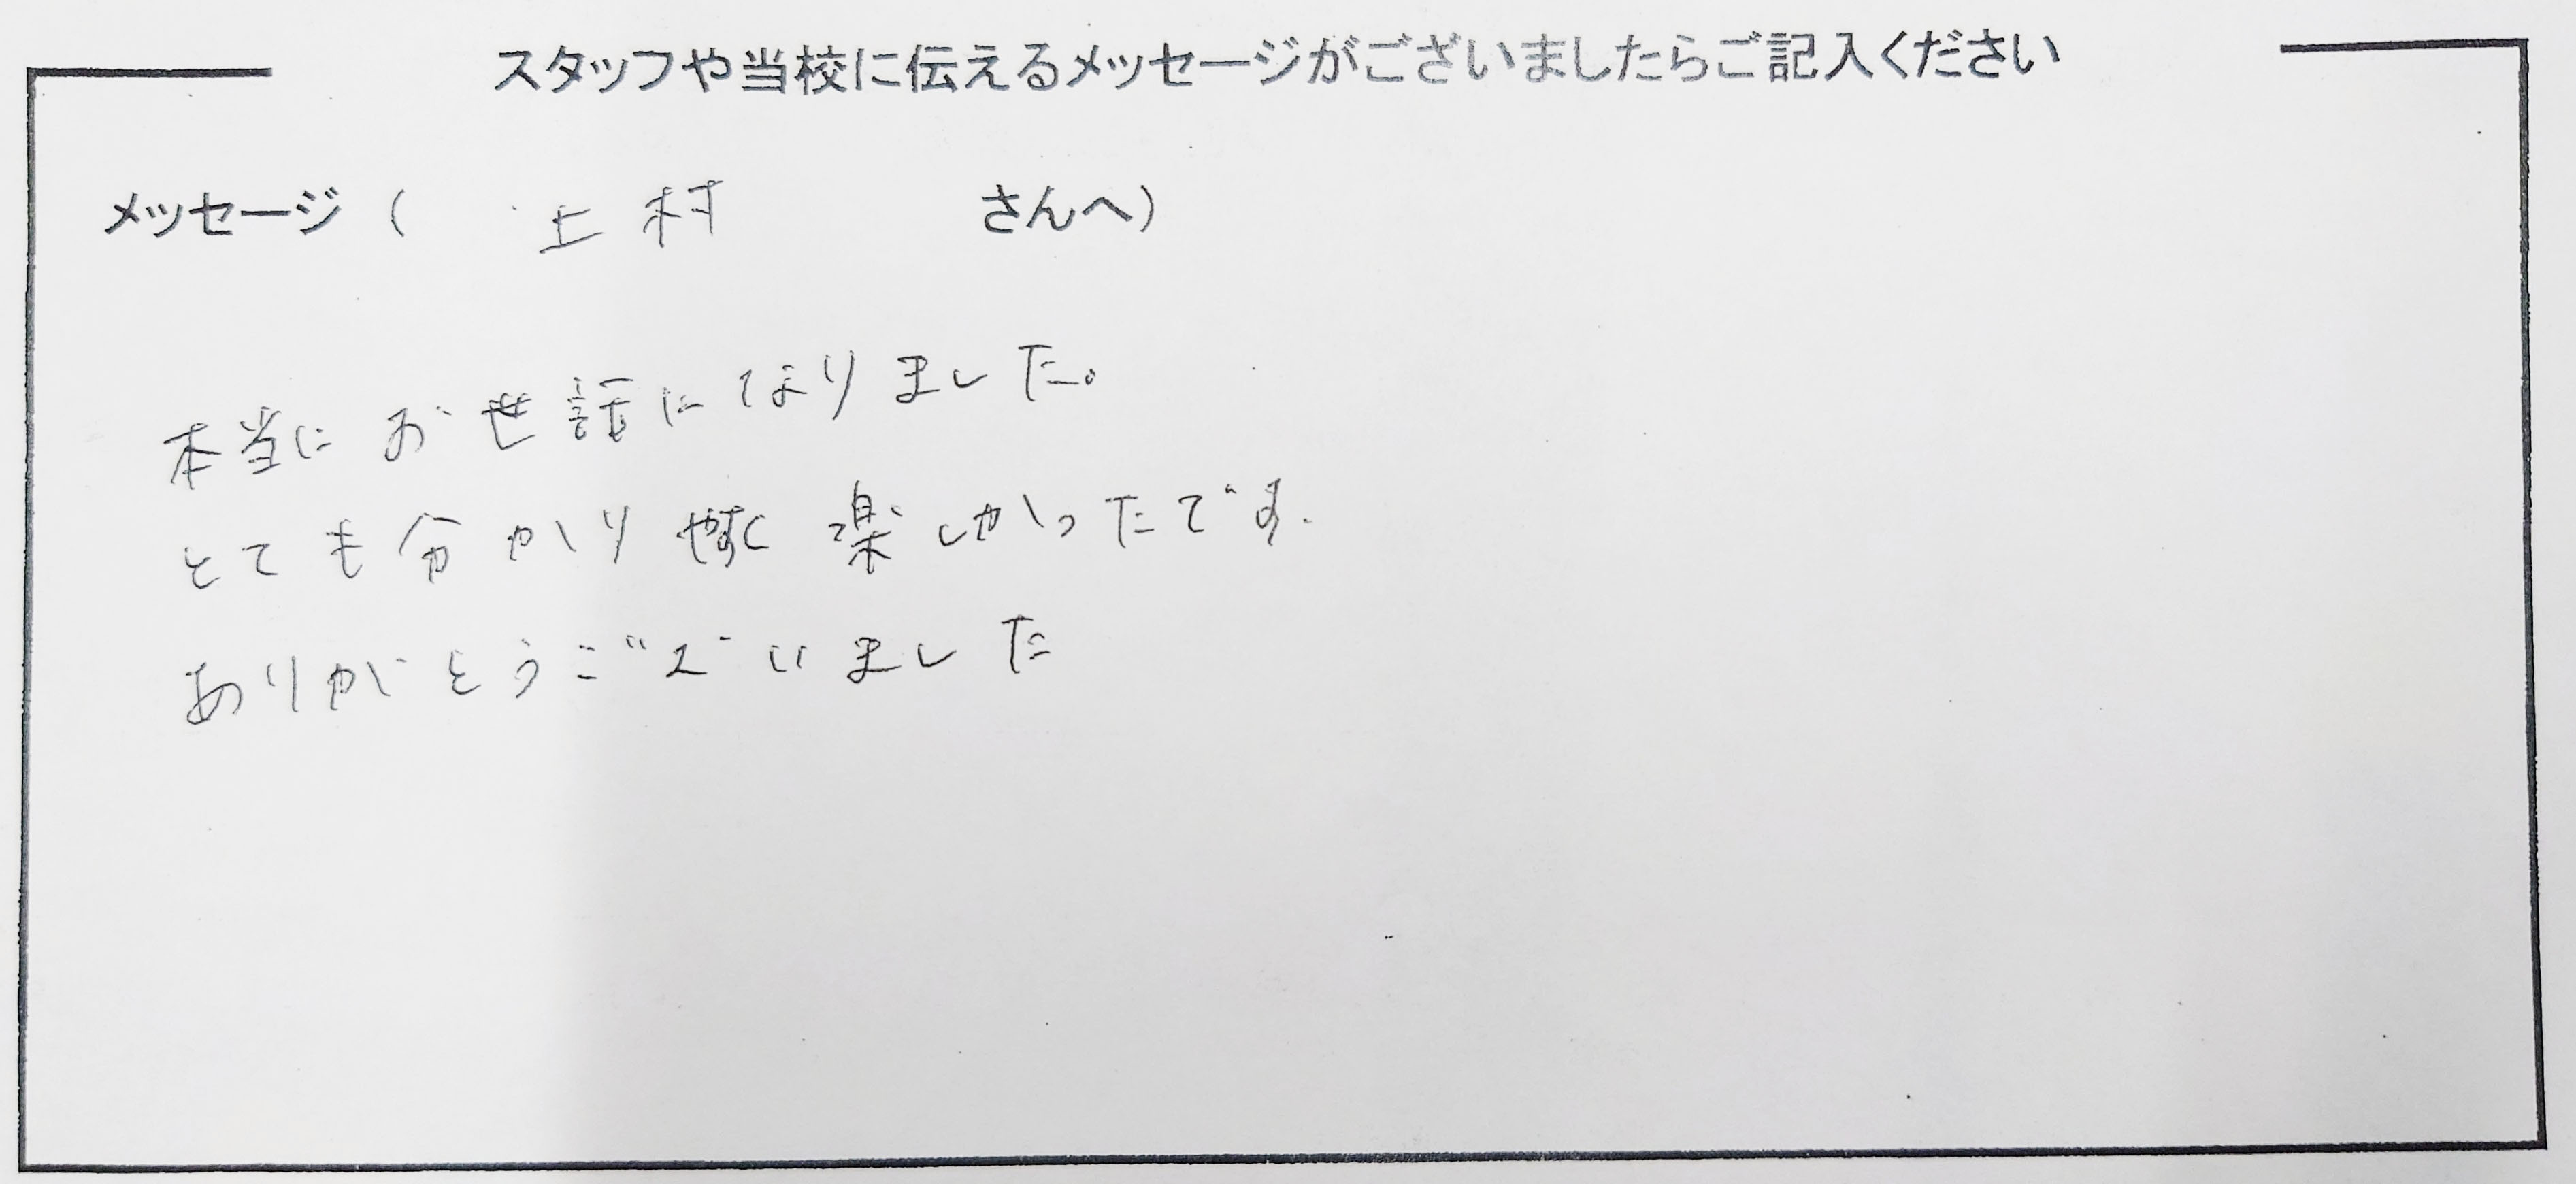 スタッフや当校に伝えるメッセージがございましたらご記入ください
メッセージ ( 上村 さんへ)
本当にお世話になりました。
とても分かりやすく楽しかったです.
ありがとうございました